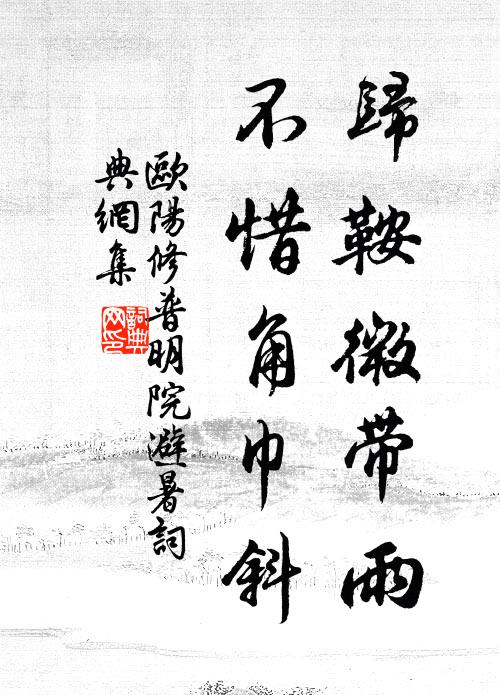 歸鞍微帶雨
不惜角巾斜
歐陽修普明院避暑詞
典網集
詞典网印